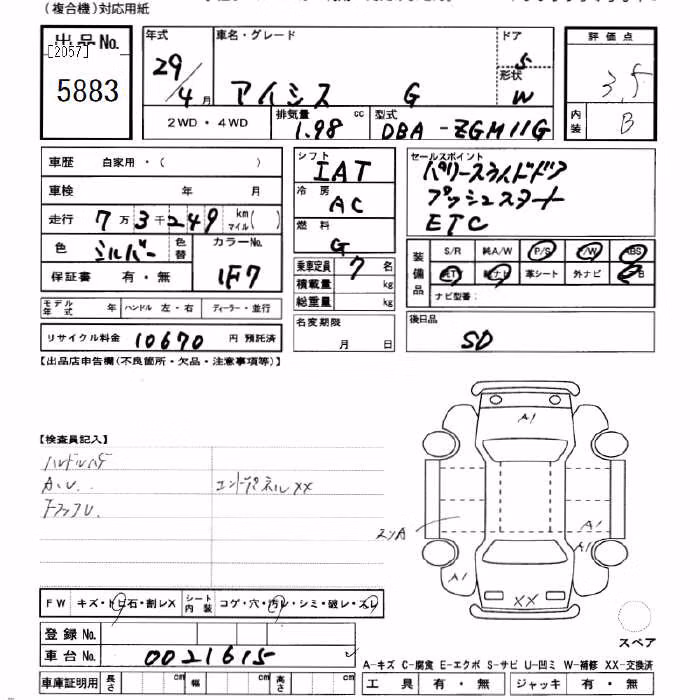 (複合機)対応用紙
出品No.
[2057]
5883
年式 29/4月
車名・グレード アイシス G
ドア 5
形状 W
評価点 3.5
内装 B
2WD・4WD
排気量 1.98 cc
型式 DBA-ZGM11G
車歴 自家用・( )
車検 年 月
走行 7万3千249 km マイル( )
色 シルバー 色替 カラーNo. 1F7
保証書 有・無
モデル年式 年 ハンドル 左・右 ディーラー・並行
リサイクル料金 10670 円 預託済
シフト IAT
冷房 AC
燃料 G
乗車定員 7 名
積載量 kg
総重量 kg
名変期限 月 日
セールスポイント
パワースライドドア
プッシュスタート
ETC
装備品
S/R 純A/W P/S P/W ABS
純TV 純ナビ 革シート 外ナビ
ナビ型番:
後日品
SD
【出品店申告欄(不良箇所・欠品・注意事項等)】
【検査員記入】
ハンドルハゲ
A.U.
エンドパネルXX
A1
A1
A1
A1
XX
スペア
FW キズ・トビ石・割レX シート内装 コゲ・穴・汚レ・シミ・破レ・スレ
登録No.
車台No. 0021615
A-キズ C-腐食 E-エクボ S-サビ U-凹ミ W-補修 XX-交換済
車庫証明用 長さ cm 幅 cm 高さ cm
工具 有・無 ジャッキ 有・無